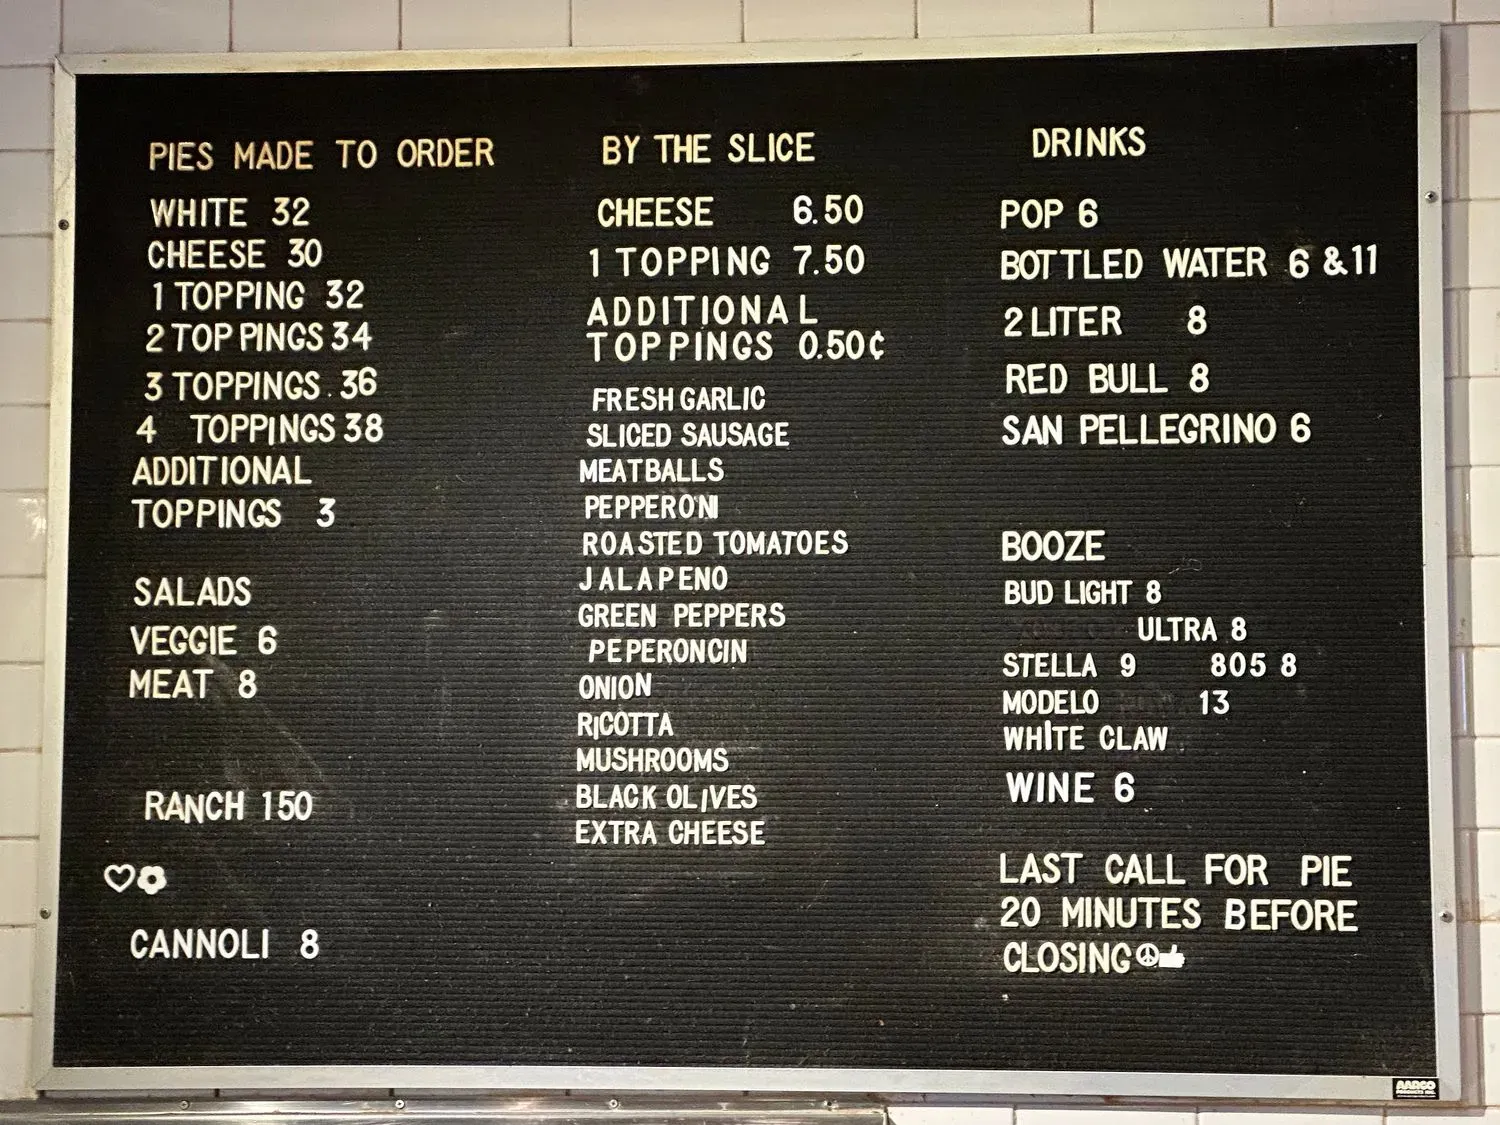 PIES MADE TO ORDER
WHITE 32
CHEESE 30
1 TOPPING 32
2 TOPPINGS 34
3 TOPPINGS . 36
4 TOPPINGS 38
ADDITIONAL
TOPPINGS 3
SALADS
VEGGIE 6
MEAT 8
RANCH 150
CANNOLI 8
BY THE SLICE
CHEESE 6.50
1 TOPPING 7.50
ADDITIONAL
TOPPINGS 0.50¢
FRESH GARLIC
SLICED SAUSAGE
MEATBALLS
PEPPERONI
ROASTED TOMATOES
JALAPENO
GREEN PEPPERS
PEPERONCIN
ONION
RICOTTA
MUSHROOMS
BLACK OLIVES
EXTRA CHEESE
DRINKS
POP 6
BOTTLED WATER 6 & 11
2 LITER 8
RED BULL 8
SAN PELLEGRINO 6
BOOZE
BUD LIGHT 8
ULTRA 8
STELLA 9 805 8
MODELO 13
WHITE CLAW
WINE 6
LAST CALL FOR PIE
20 MINUTES BEFORE
CLOSING
AARCO